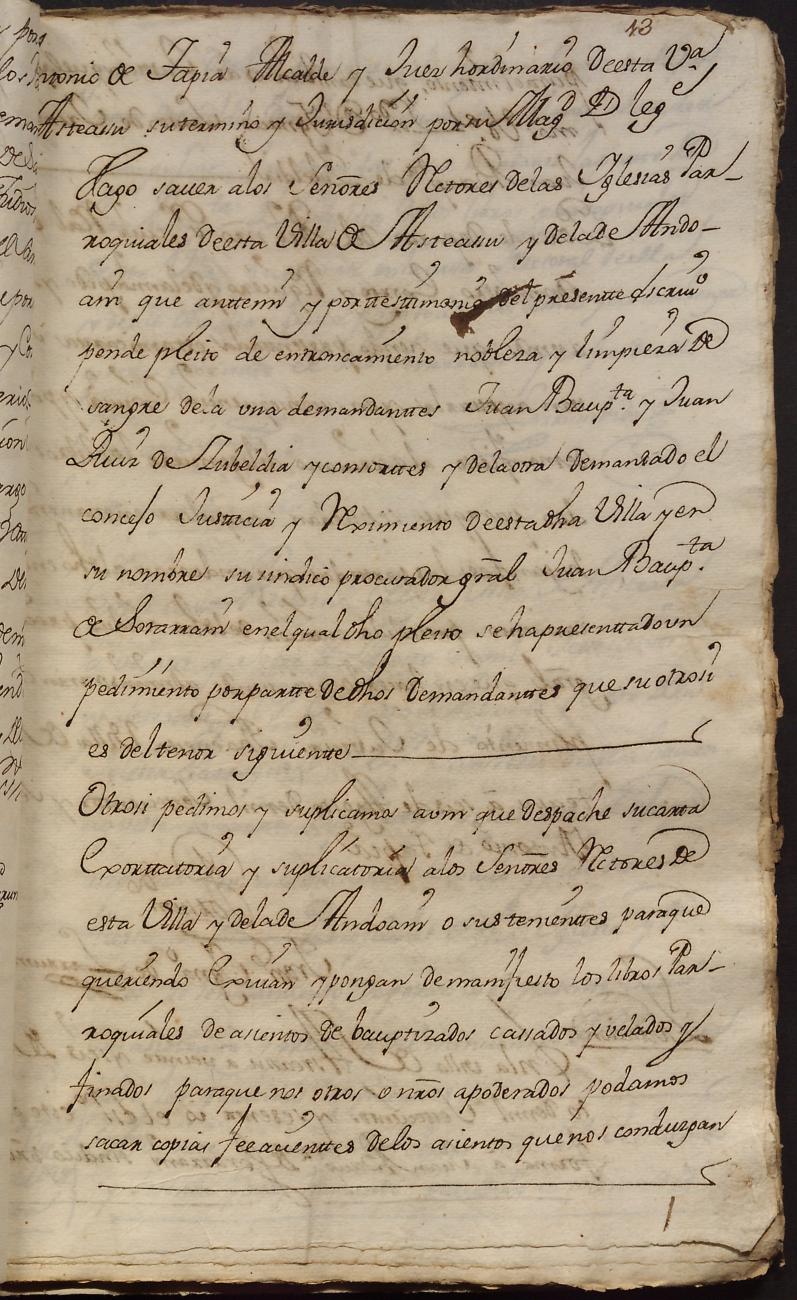 13
Antonio de Tapia Alcalde y Juez hordinario deesta Va
Asteasu sutermino y Jurisdicion por su Magd D lege
Hago saver alos Señores Retores delas Yglesias Par-
roquiales deesta Villa de Asteasu y delade Ando-
ain que anttemi y porttesttimonio del presentte escrivo
pende pleito de entroncamiento nobleza y limpieza de
sangre dela una demandanttes Juan Baupta. y Juan
Ruiz de Zubeldia y consorttes y dela otra demandado el
concejo Justticia y Reximiento deesta dha Villa y en
su nombre su sindico procurador gral Juan Baupta.
de Sorarrain enelqual dho pleito se ha presenttado un
pedimiento por partte de dhos demandanttes que su otrosi
es deltenor siguientte
Otrosi pedimos y suplicamos avm que despache su carta
Exorttatoria y suplicatoria alos Señores Retores de
esta Villa y delade Andoain o sus tenienttes paraque
queriendo Exivan y pongan de manifiesto los libros Par-
roquiales de asientos de bauptizados cassados y velados y
finados paraque nos otros o nros apoderados podamos
sacar copias feeacienttes delos asientos que nos conduzgan